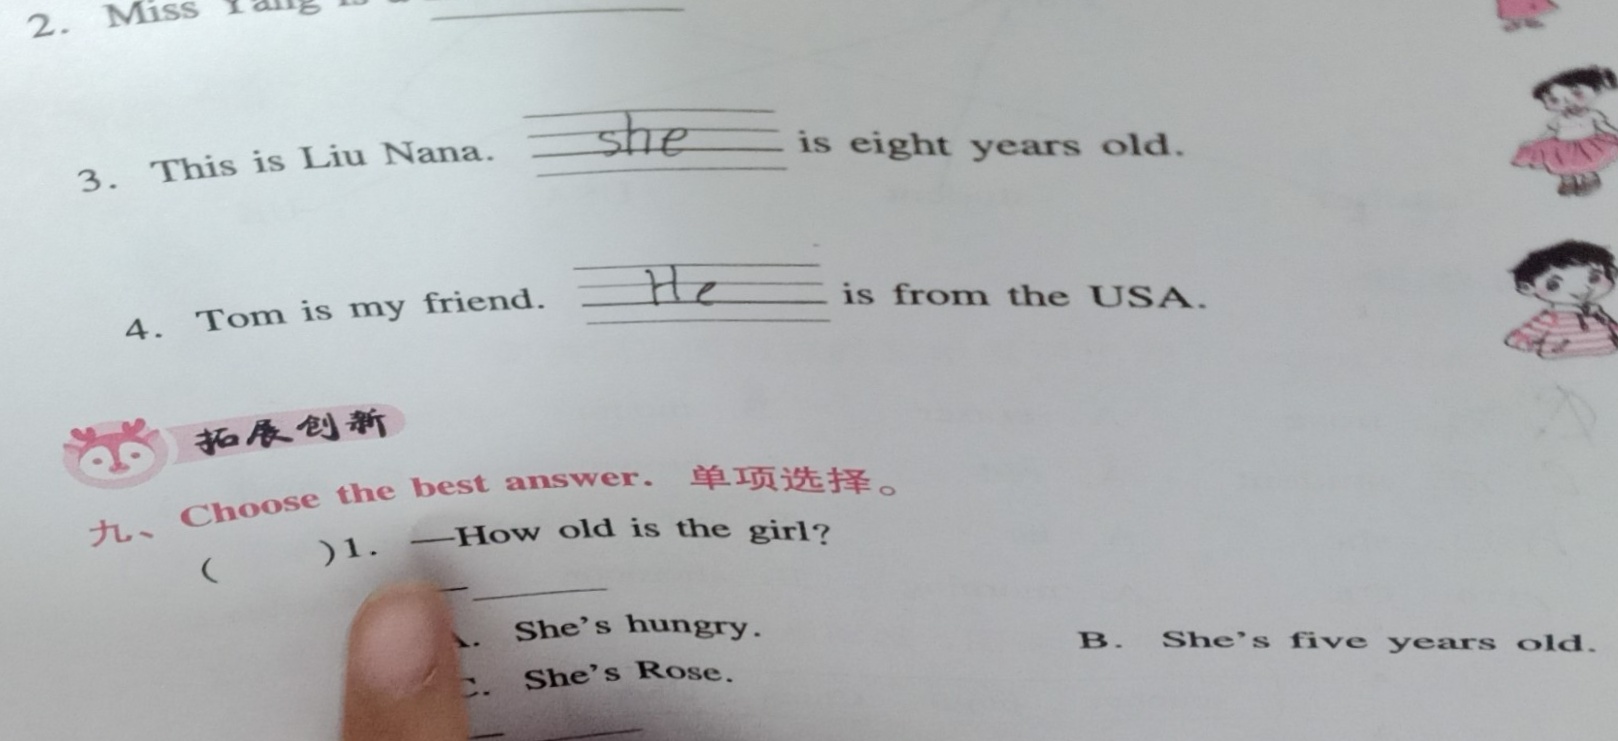 2. Miss Yang is a
3. This is Liu Nana. she is eight years old.
4. Tom is my friend. He is from the USA.
拓展创新
九、Choose the best answer. 单项选择。
( )1. —How old is the girl?
—
A. She's hungry. B. She's five years old.
C. She's Rose.